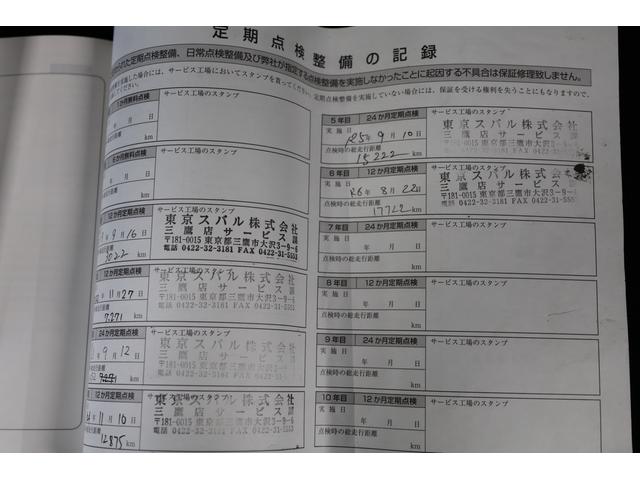 定期点検整備の記録
れた定期点検整備、日常点検整備及び弊社が指定する点検整備を実施しなかったことに起因する不具合は保証修理致しません。
を実施した場合には、サービス工場においてスタンプを貰ってください。定期点検整備を実施していない場合には、保証を受ける権利を失うこともありますので、
1か月無料点検
サービス工場のスタンプ
月 日
km
6か月無料点検
サービス工場のスタンプ
月 日
km
12か月定期点検
サービス工場のスタンプ
9月16日
3022 km
東京スバル株式会社
三鷹店サービス課
〒181-0015 東京都三鷹市大沢3-9-6
電話 0422-32-3181 FAX 0422-31-5553
12か月定期点検
サービス工場のスタンプ
11月27日
7271 km
東京スバル株式会社
三鷹店サービス課
〒181-0015 東京都三鷹市大沢3-9-6
電話 0422-32-3181 FAX 0422-31-5553
24か月定期点検
サービス工場のスタンプ
9月12日
km
東京スバル株式会社
三鷹店サービス課
〒181-0015 東京都三鷹市大沢3-9-6
電話 0422-32-3181 FAX 0422-31-5553
12か月定期点検
サービス工場のスタンプ
11月10日
12875 km
東京スバル株式会社
三鷹店サービス課
〒181-0015 東京都三鷹市大沢3-9-6
電話 0422-32-3181 FAX 0422-31-5553
5年目 24か月定期点検
サービス工場のスタンプ
実施日
R5年9月10日
点検時の総走行距離
15222 km
東京スバル株式会社
三鷹店サービス課
〒181-0015 東京都三鷹市大沢3-9-6
電話 0422-32-3181 FAX 0422-31-5553
6年目 12か月定期点検
サービス工場のスタンプ
実施日
R6年8月22日
点検時の総走行距離
17722 km
東京スバル株式会社
三鷹店サービス課
〒181-0015 東京都三鷹市大沢3-9-6
電話 0422-32-3181 FAX 0422-31-5553
7年目 24か月定期点検
サービス工場のスタンプ
実施日
年 月 日
点検時の総走行距離
km
8年目 12か月定期点検
サービス工場のスタンプ
実施日
年 月 日
点検時の総走行距離
km
9年目 24か月定期点検
サービス工場のスタンプ
実施日
年 月 日
点検時の総走行距離
km
10年目 12か月定期点検
サービス工場のスタンプ
実施日
年 月 日
点検時の総走行距離
km